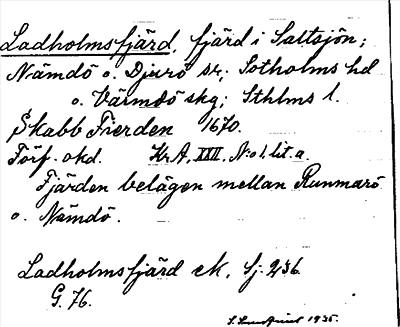 Ladholmsfjärd, fjärd i Saltsjön;
Nämdö o. Djurö sr; Sotholms hd
o. Värmdö skg; Sthlms l.
Skabb Fierden 1670.
Förf. okd. Kr A, XXII, N:o 1. lit. a.
Fjärden belägen mellan Runmarö
o. Nämdö.
Ladholmsfjärd ek, Sj. 236
G. 76.
1935.